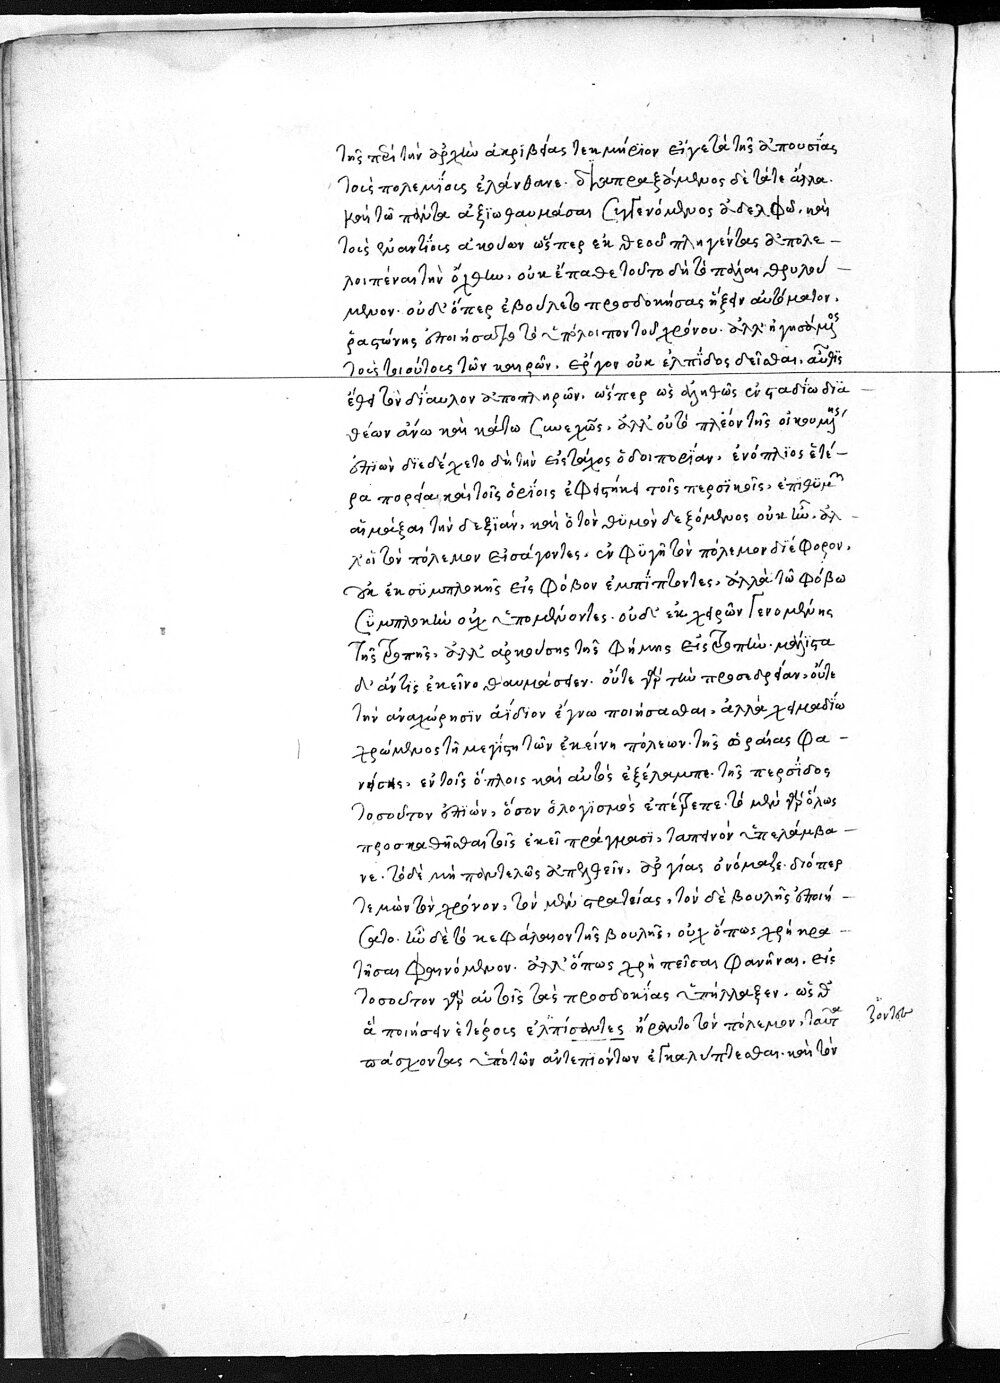 τῆς περὶ τὴν ἀρχὴν ἀκριβείας τεκμήριον εἴγε τὰ τῆς ἀπουσίας
τοὺς πολεμίους ἐλάνθανε. διαπραξάμενος δὲ τά τε ἄλλα
καὶ τῶ πάντα ἀξίω θαυμάσαι συγγενόμενος ἀδελφῶ, καὶ
τοὺς ἐναντίους ἀκούων ὥσπερ ἐκ θεοῦ πληγέντας ἀπολε–
λοιπέναι τὴν ὄχθην, οὐκ ἔπαθε τοῦτο δὴ τὸ πάλαι θρυλού–
μενον. οὐδ' ὅπερ ἐβούλετο προσδοκήσας ἥξειν αὐτόματον,
ῥαστώνης ἐποιήσατο τὸ ὑπόλοιπον τοῦ χρόνου. ἀλλ' ἡγησάμενος
τοὺς τοιούτους τῶν καιρῶν, ἔργον οὐκ ἐλπίδος δεῖσθαι, αὖθις
ἔθει τὸν δίαυλον ἀποπληρῶν, ὥσπερ ὡς ἀληθῶς ἐν σταδίω δια–
θέων ἄνω καὶ κάτω συνεχῶς. ἀλλ' οὐ τὸ πλέον τῆς οἰκουμένης
ἐπιὼν διεδέχετο δὴ τὴν εἰς τάχος ὁδοιπορίαν, ἐνόπλιος ἑτέ–
ρα πορεία καὶ τοῖς ὁρίοις ἐφειστήκει τοῖς περσικοῖς, ἐπιθυμῶν
αἱμάξαι τὴν δεξιὰν, καὶ ὁ τὸν θυμὸν δεξόμενος οὐκ ἦν. ἀλ–
λ' οἱ τὸν πόλεμον εἰσάγοντες, ἐν φυγῆ τὸν πόλεμον διέφερον,
οὐκ ἐκ συμπλοκῆς εἰς φόβον ἐμπίπτοντες, ἀλλὰ τῶ φόβω
συμπλοκὴν οὐχ ὑπομένοντες. οὐδ' ἐκ χειρῶν γενομένης
τῆς τροπῆς, ἀλλ' ἀρκούσης τῆς φήμης εἰς τροπήν. μάλιστα
δ' ἄν τις ἐκεῖνο θαυμάσειεν. οὔτε γὰρ τὴν προσεδρείαν, οὔτε
τὴν ἀναχώρησιν ἀΐδιον ἔγνω ποιήσασθαι, ἀλλὰ χειμαδίω
χρώμενος τῆ μεγίστη τῶν ἐκείνη πόλεων. τῆς ὡραίας φα–
νείσης, ἐν τοῖς ὅπλοις καὶ αὐτὸς ἐξέλαμπε. τῆς περσίδος
τοσοῦτον ἐπιών, ὅσον ὁ λογισμὸς ἐπέτρεπε. τὸ μὲν γὰρ ὅλως
προσκαθῆσθαι τοῖς ἐκεῖ πράγμασι, ταπεινὸν ὑπελάμβα–
νε. τὸ δὲ μὴ παντελῶς ἀπελθεῖν, ἀργίας ὀνόμαζε. διόπερ
τεμὼν τὸν χρόνον, τὸν μὲν στρατείας, τὸν δὲ βουλῆς ἐποιή–
σατο. ἦν δὲ τὸ κεφάλαιον τῆς βουλῆς, οὐχ ὅπως χρὴ κρα–
τῆσαι φαινόμενον. ἀλλ' ὅπως χρὴ πεῖσαι φανῆναι. εἰς
τοσοῦτον γὰρ αὐτοῖς τὰς προσδοκίας ὑπήλλαξεν. ὥσθ'
ἃ ποιήσειν ἑτέρους ἐλπίσαντες ἤραντο τὸν πόλεμον, ταῦτα
πάσχοντας ὑπὸ τῶν ἀντεπιόντων ἐγκαλύπτεσθαι. καὶ τὸν
ζοντας